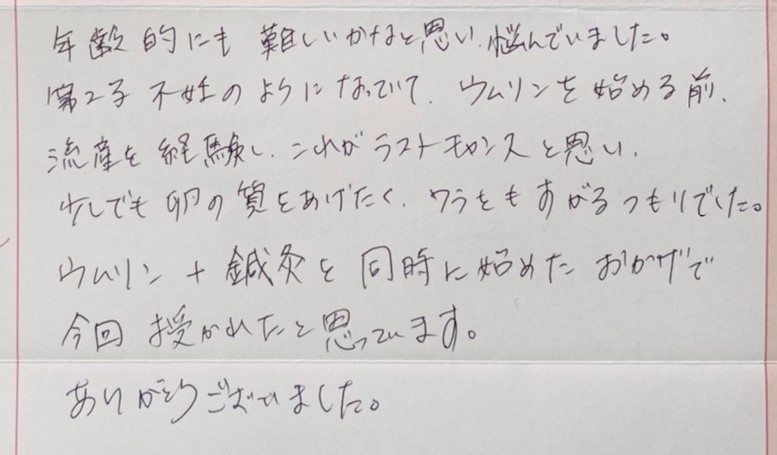 年齢的にも 難しいかなと思い、悩んでいました。
第2子 不妊のようになっていて、ウムリンを始める前、
流産を経験し、これがラストチャンスと思い、
少しでも卵の質をあげたく、ワラをもすがるつもりでした。
ウムリン + 鍼灸を同時に始めた おかげで
今回 授かれたと思っています。
ありがとうございました。